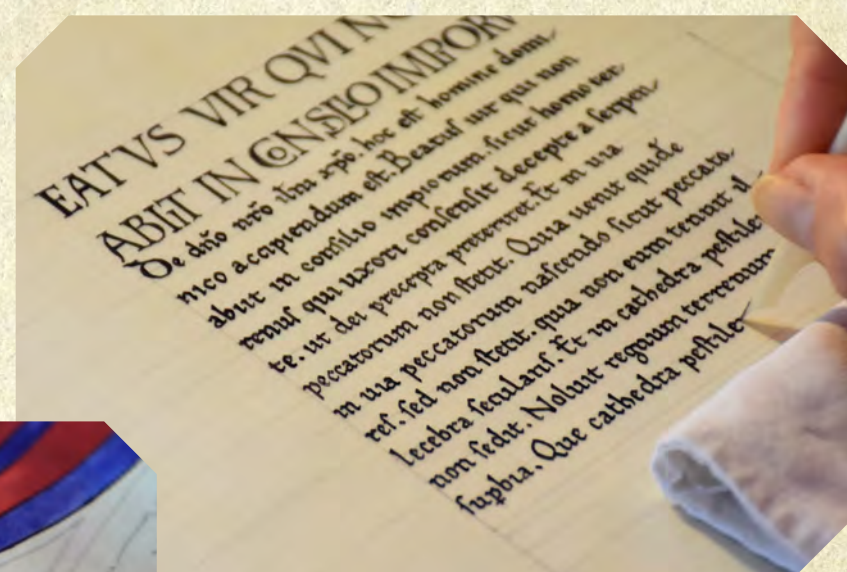 EATVS VIR QVI
ABIIT IN CONSILIO IMPIORV
De dño nrõ ihũ xpõ. hoc eſt homine domi,
nico accipiendum eſt. Beatuſ uir qui non
abiit in conſilio impiorum. ſicut homo ter,
renuſ qui uxori conſenſit decepte a ſerpen,
te. ut dei precepta preteriret. Et in uia
peccatorum non ſtetit. Quia uenit quidē
in uia peccatorum naſcendo ſicut peccato,
reſ. ſed non ſtetit. quia non eum tenuit il,
lecebra ſeculariſ. Et in cathedra peſtile
non ſedit. Noluit regnum terrenum
ſuꝑbia. Que cathedra peſtile